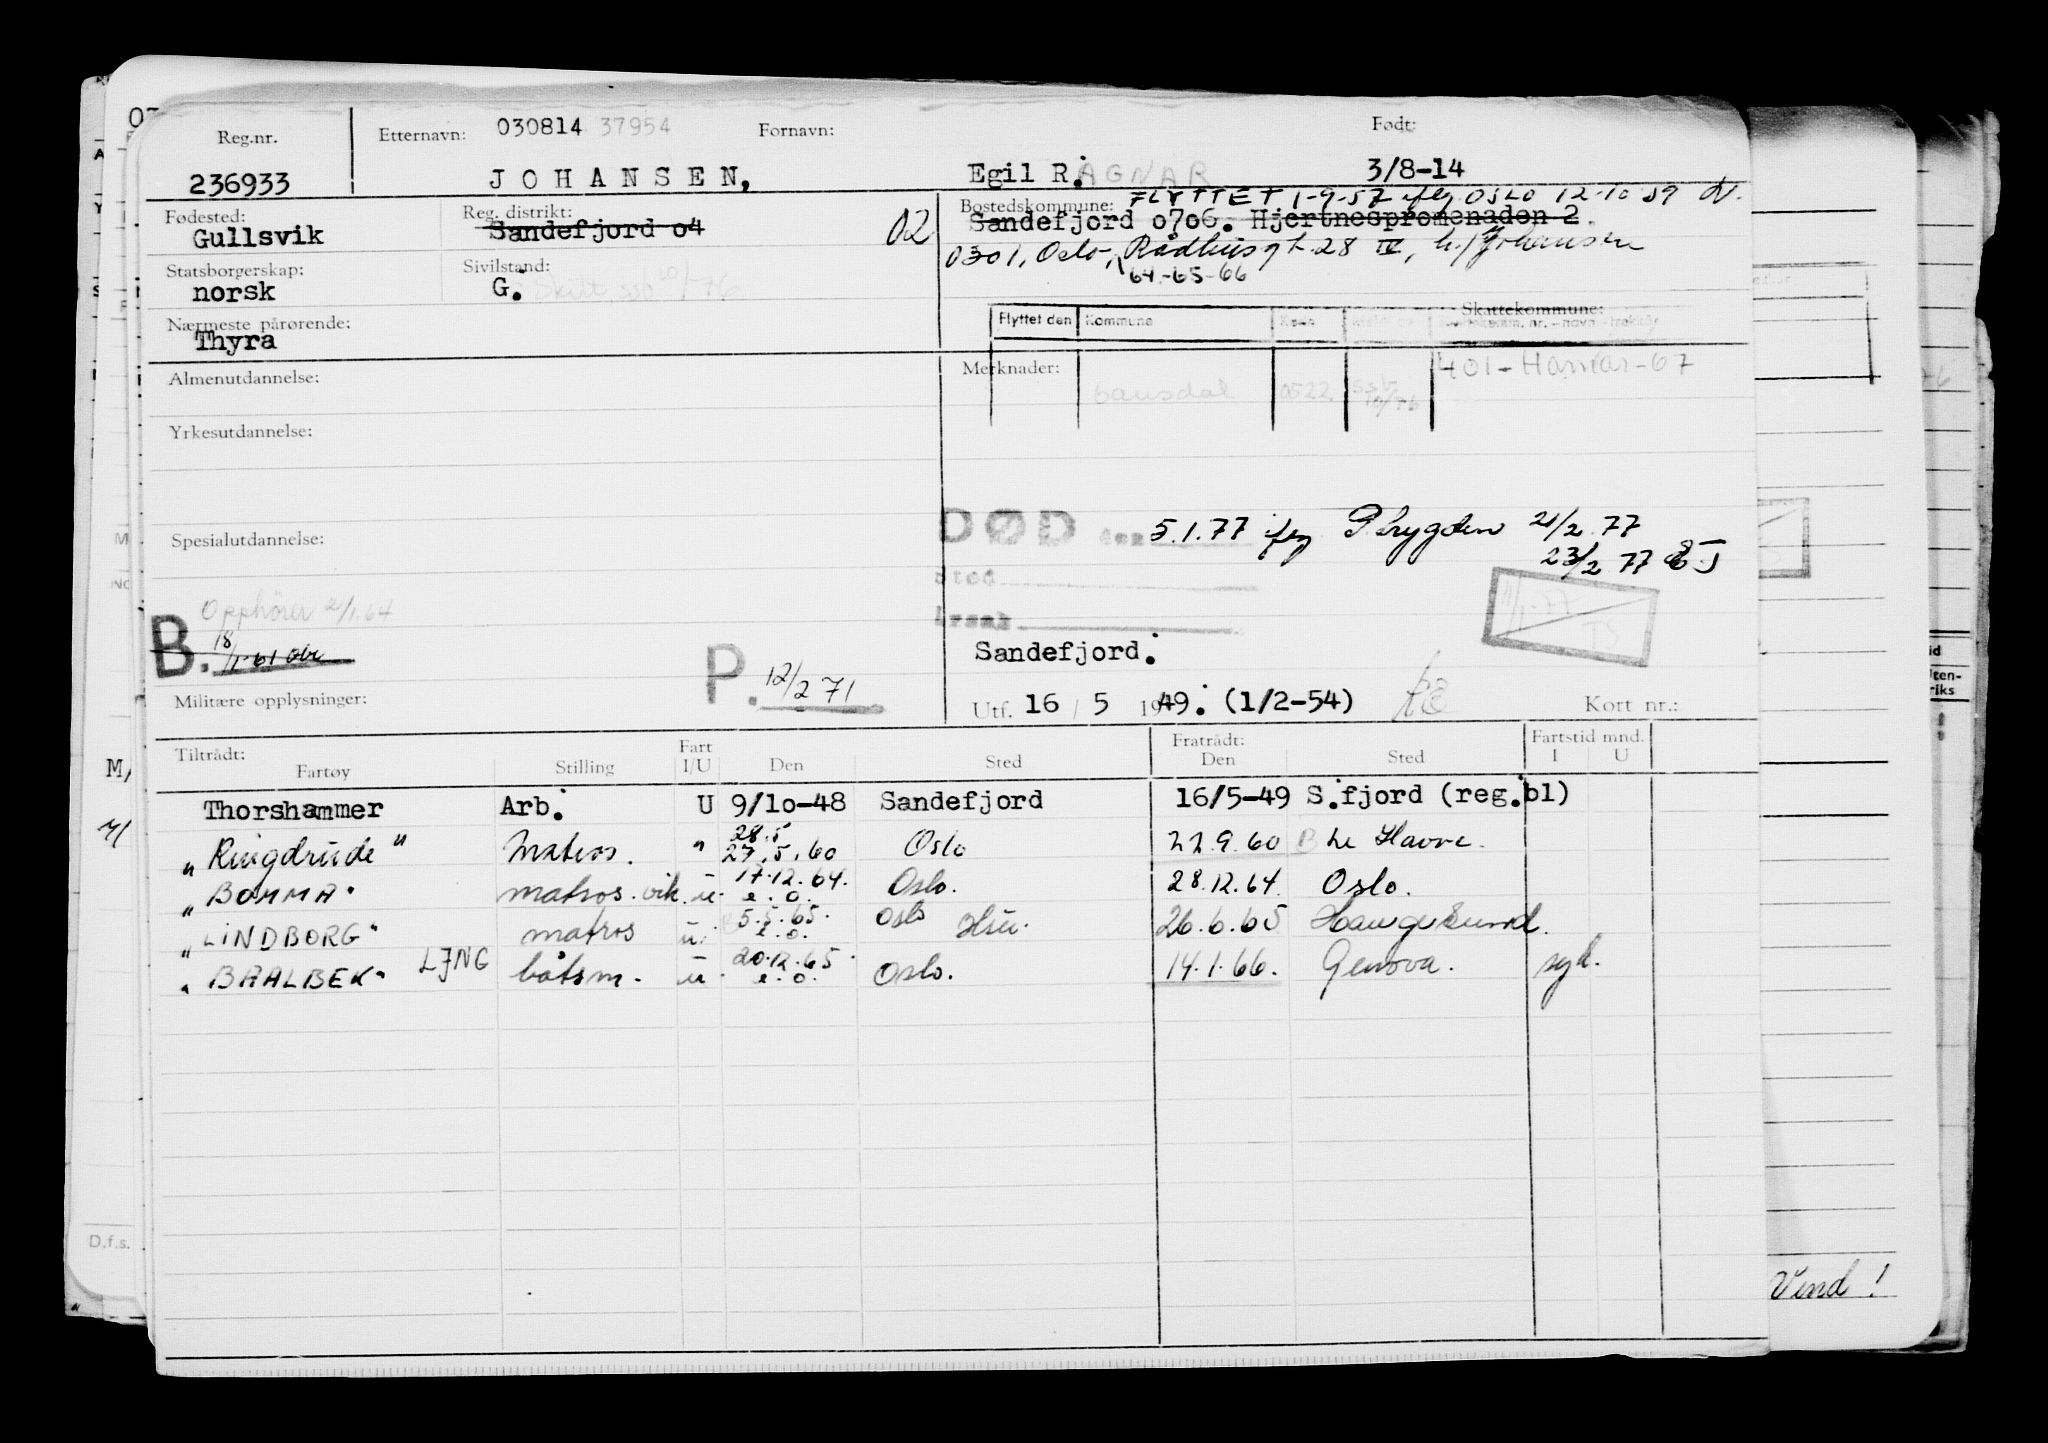 Reg.nr. Etternavn: 030814 37954 Fornavn: Født:
236933 JOHANSEN, Egil R. AGNAR 3/8-14
Fødested: Reg. distrikt: Bostedskommune: FLYTTET 1-9-57 iflg OSLO 12-10-59
Gullsvik Sandefjord o4 02 Sandefjord o7o6. Hjertnespromenaden 2.
0301, Oslo, Rådhusgt. 28 IV, h/Johansen
64-65-66
Statsborgerskap: Sivilstand:
norsk G. Skilt, ssb 10/76
Nærmeste pårørende: Skattekommune:
Thyra Flyttet den Kommune
Almenutdannelse: Merknader: Gausdal 0522 ssb 10/76 401-Hamar-67
Yrkesutdannelse:
Spesialutdannelse: DØD den 5.1.77 iflg P.trygden 21/2 77
23/2 77
Sted
Årsak
Opphører 2/1.64
B. 18/1-61 11/1-77 TS
Sandefjord.
P. 12/2 71
Militære opplysninger: Utf. 16 / 5 1949. (1/2-54) Kort nr.:
Tiltrådt: Fart Fratrådt: Fartstid mnd.
Fartøy Stilling I/U Den Sted Den Sted I U
Thorshammer Arb. U 9/1o-48 Sandefjord 16/5-49 S.fjord (reg.bl)
"Ringdrude" Matros. " 28.5 27.5.60 Oslo 22.9.60 Le Havre.
"BOMMA" matros. vik. u. 17.12.64. e.o. Oslo. 28.12.64. Oslo.
"LINDBORG" matros u. 5.5.65. e.o. Oslo Hsu. 26.6.65 Haugesund.
"BAALBEK" LJNG båtsm. u. 20.12.65. e.o. Oslo. 14.1.66. Genova. syk.
D.f.s.
Vend!